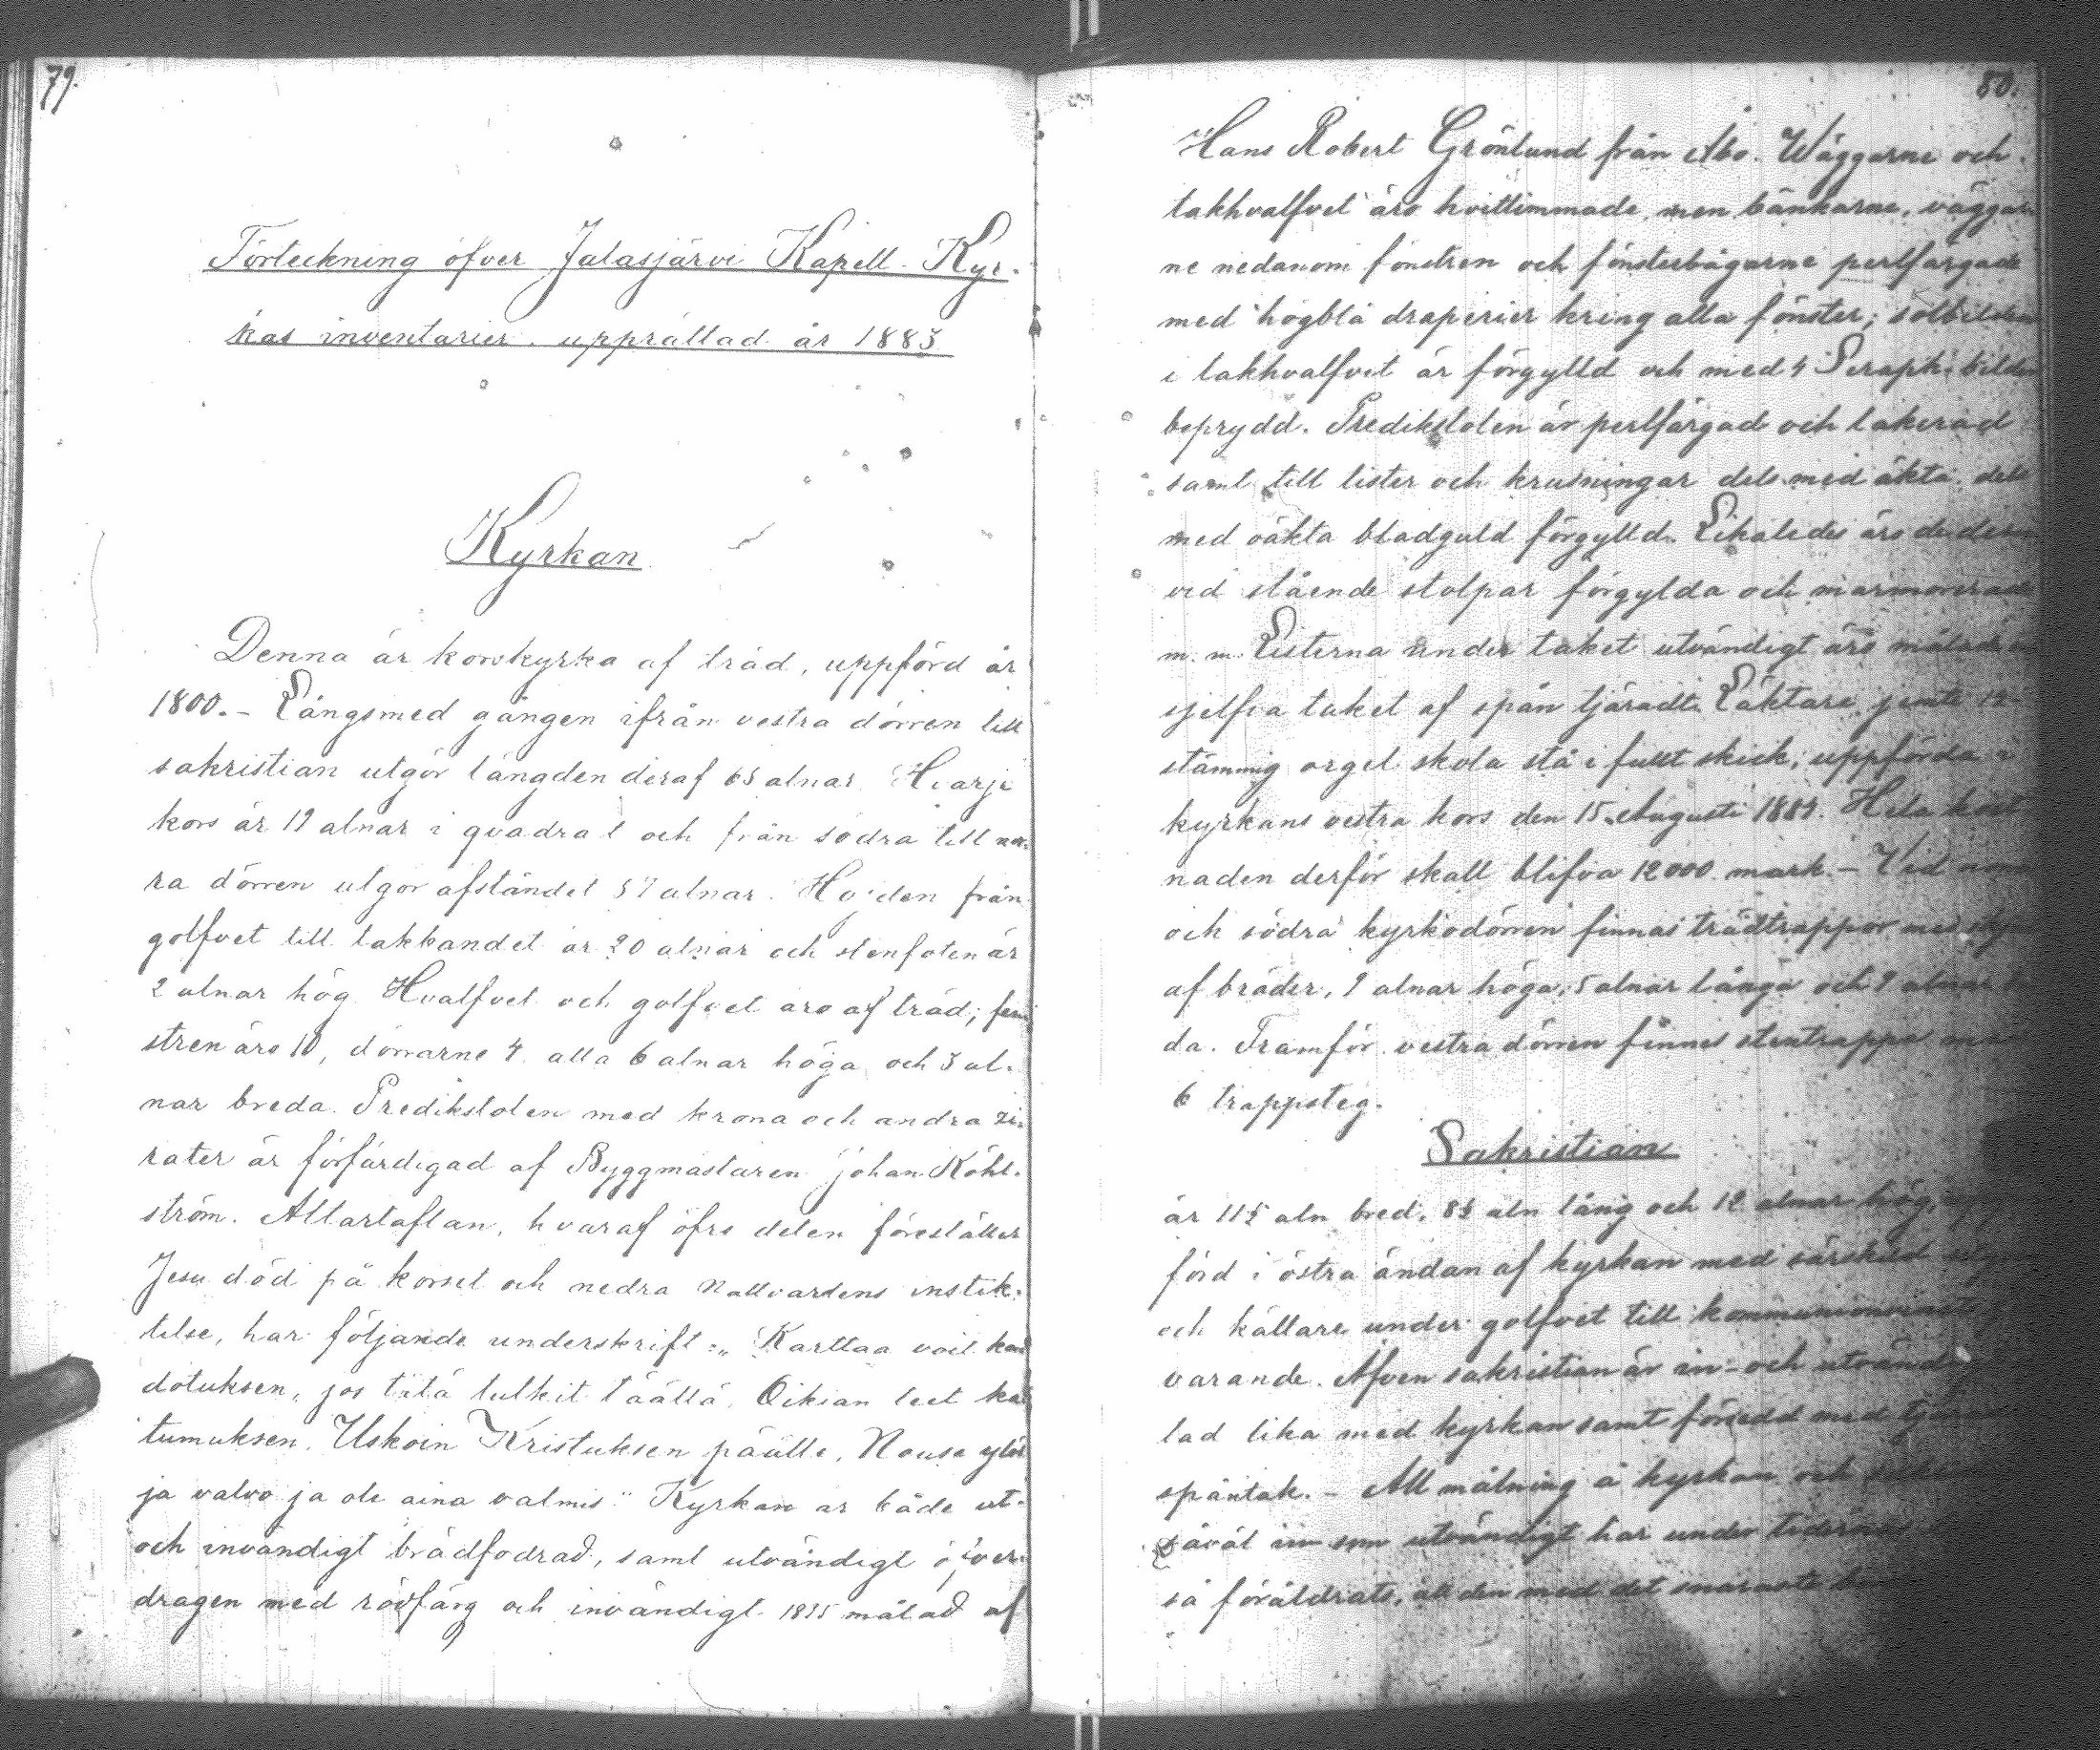 79.
Förteckning öfver Jalasjärvi Kapell-Kyr-
kas inventarier upprättad år 1883
Kyrkan
Denna är korskyrka af träd, uppförd år
1800. – Långsmed gången ifrån vestra dörren till
sakristian utgör längden deraf 65 alnar. Hvarje
kors är 19 alnar i qvadrat och från södra till nor-
ra dörren utgör afståndet 57 alnar. Höjden från
golfvet till takbandet är 20 alnar och stenfoten är
2 alnar hög. Hvalfvet och golfvet äro af träd; fen
stren äro 10, dörrarne 4 alla 6 alnar höga och 3 al-
nar breda. Predikstolen med krona och andra zi-
rater är förfärdigad af Byggmästaren Johan Köhl-
ström. Altartaflan, hvaraf öfre delen föreställer
Jesu död på korset och nedra Nattvardens instik-
telse, har följande underskrift: „Karttaa voit ka
dotuksen, jos tätä tutkit täällä, Oikian teet ka
tumuksen, Uskoin Kristuksen päälle, Nouse ylös
ja valvo ja ole aina valmis." Kyrkan är både ut-
och invändigt brädfodrad, samt utvändigt öfver-
dragen med rödfärg och invändigt 1835 målad af
80.
Hans Robert Grönlund från Åbo. Wäggarne och
takhvalfvet äro hvitlimmade, men bänkarne, väggar
ne nedanom fönstren och fönsterbågarne perlfärgade
med högblå draperier kring alla fönster; solbilden
i takhvalfvet är förgylld och med 4 Seraph-bilder
beprydd. Predikstolen är perlfärgad och lakerad
samt till lister och krusningar dels med äkta, dels
med oäkta bladguld förgylld. Likaledes äro de der
vid stående stolpar förgylda och marmorerade
m. m. Listerna under taket utvändigt äro målade
sjelfva taket af spån tjäradt. Läktare jemte 12-
stämmig orgel skola stå i fullt skick, uppförda i
kyrkans vestra kors den 15 Augusti 1884. Hela kost
naden derför skall blifva 12000 mark. – Vid norra
och södra kyrkodörren finnas trädtrappor med
af bräder, 9 alnar höga, 5 alnar långa och 9 alnar
da. Framför vestra dörren finnes stentrappa
6 trappsteg.
Sakristian
är 11½ aln bred, 8½ aln lång och 12 alnar hög,
förd i östra ändan af kyrkan med särskild
och källare under golfvet till
varande. Äfven sakristian är in- och utvändigt
lad lika med kyrkan samt försedd med
spåntak. – All målning å kyrkan och
såväl in som utvändigt har under tidernas
så föråldrats, att den med det snaraste